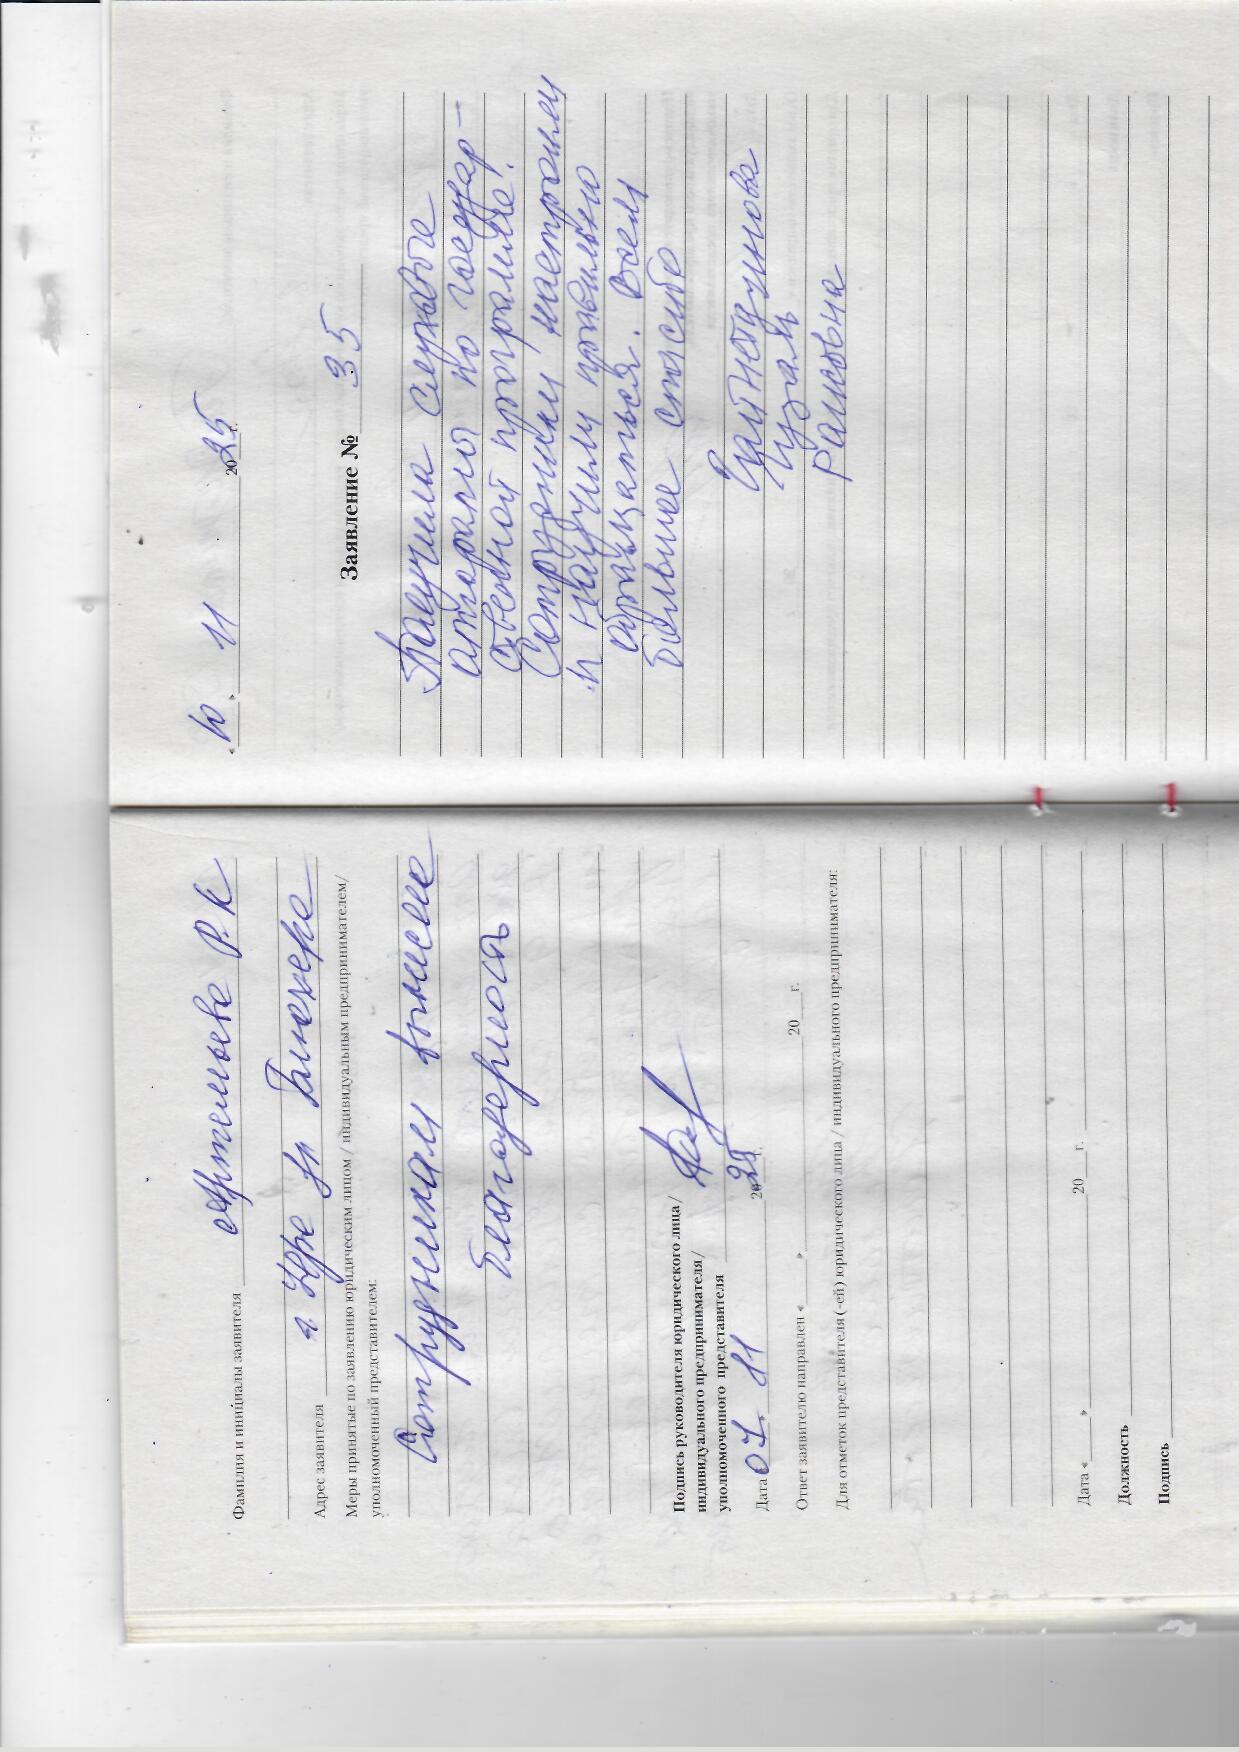 Фамилия и инициалы заявителя Артемьева Р. К
Адрес заявителя г. Уфа ул Блюхера
Меры принятые по заявлению юридическим лицом / индивидуальным предпринимателем/
уполномоченный представителем:
Сотрудникам вынесена
благодарность
Подпись руководителя юридического лица/
индивидуального предпринимателя/
уполномоченного представителя
Дата 07. 11 2025 г.
Ответ заявителю направлен « » 20 г.
Для отметок представителя (-ей) юридического лица / индивидуального предпринимателя:
Дата « » 20 г.
Должность
Подпись
« 10 » 11 2025 г.
Заявление № 35
Получила слуховые
аппараты по государ-
ственной программе.
Сотрудники настроили
и научили правильно
общаться. Всем
большое спасибо
Гузаль
Раисовна